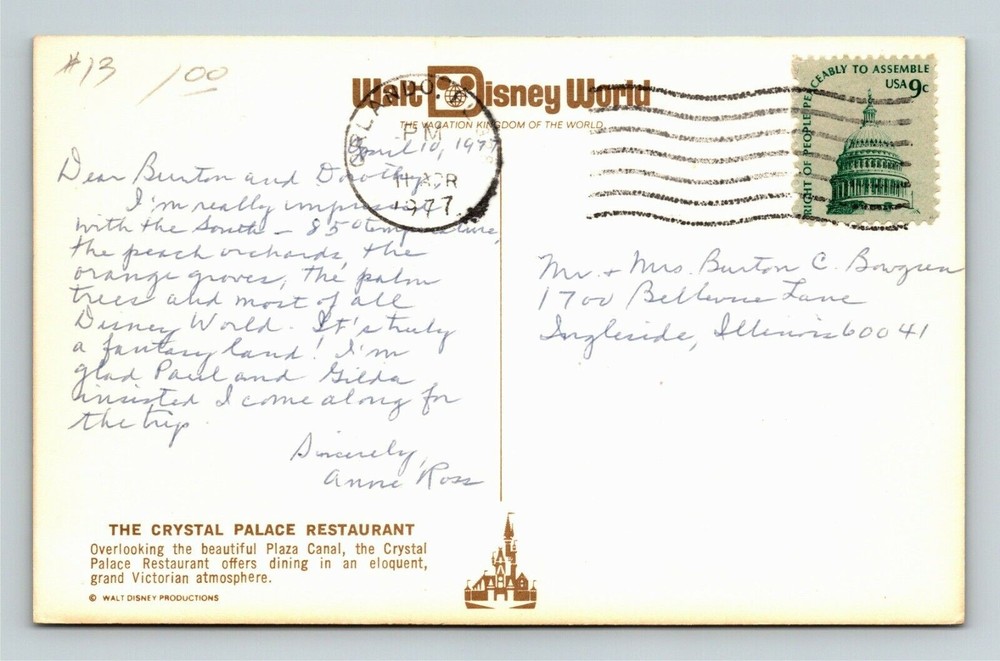 #13 100
Walt Disney World
THE VACATION KINGDOM OF THE WORLD
ORLANDO,
PM
11 APR
1977
RIGHT OF PEOPLE PEACEABLY TO ASSEMBLE
USA 9c
April 10, 1977
Dear Burton and Dorothy,
I'm really impressed
with the South – 85° temperature,
the peach orchards, the
orange groves, the palm
trees and most of all
Disney World. It's truly
a fantasy land! I'm
glad Paul and Gilda
insisted I come along for
the trip.
Sincerely,
Anne Ross
Mr. + Mrs. Burton C. Bowgren
1700 Bellevue Lane
Ingleside, Illinois 60041
THE CRYSTAL PALACE RESTAURANT
Overlooking the beautiful Plaza Canal, the Crystal
Palace Restaurant offers dining in an eloquent,
grand Victorian atmosphere.
© WALT DISNEY PRODUCTIONS